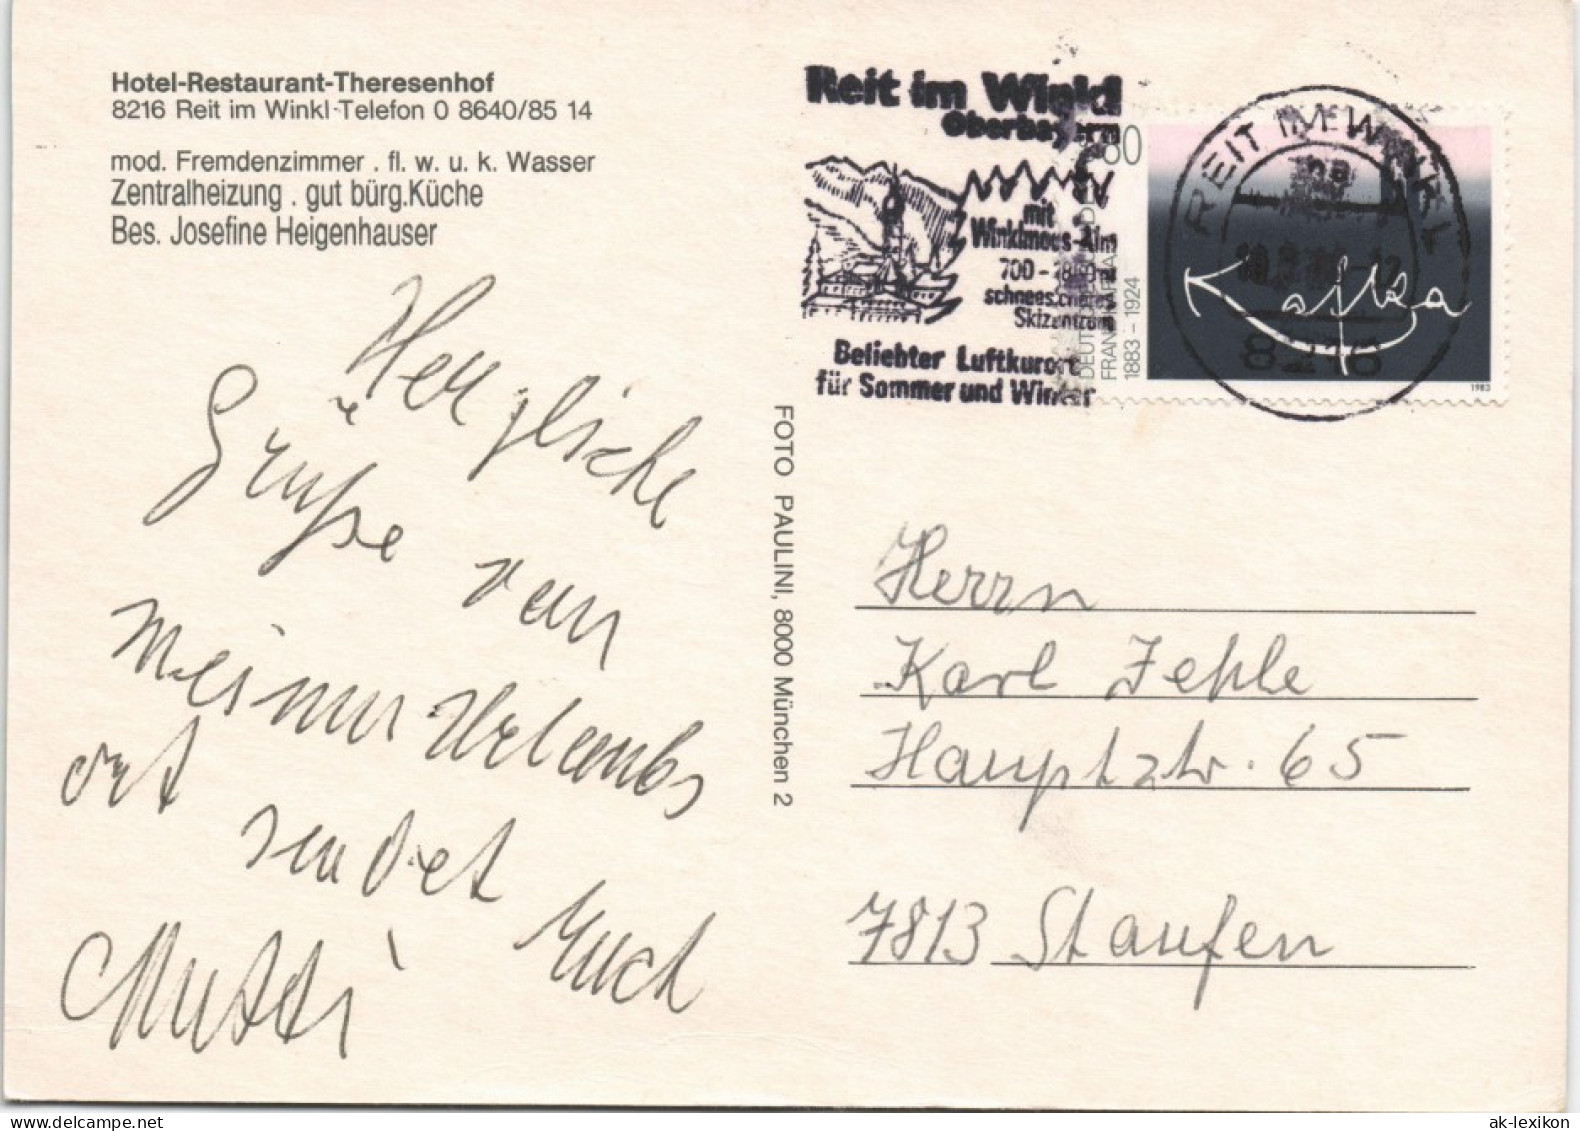 Hotel-Restaurant-Theresenhof
8216 Reit im Winkl-Telefon 0 8640/85 14
mod. Fremdenzimmer . fl. w. u. k. Wasser
Zentralheizung . gut bürg.Küche
Bes. Josefine Heigenhauser
Herzliche
Grüße von
meinem Urlaubs
ort sendet Euch
Mutti
FOTO PAULINI, 8000 München 2
Reit im Winkl
Oberbayern
mit
Winklmoos-Alm
700 - m
schneesicheres
Skizentrum
Beliebter Luftkurort
für Sommer und Winter
80
DEUTSCHE
FRANZ KAFKA
1883 - 1924
Kafka
1983
REIT IM WINKL
8216
Herrn
Karl Jehle
Hauptstr. 65
7813 Staufen
ak-lexikon